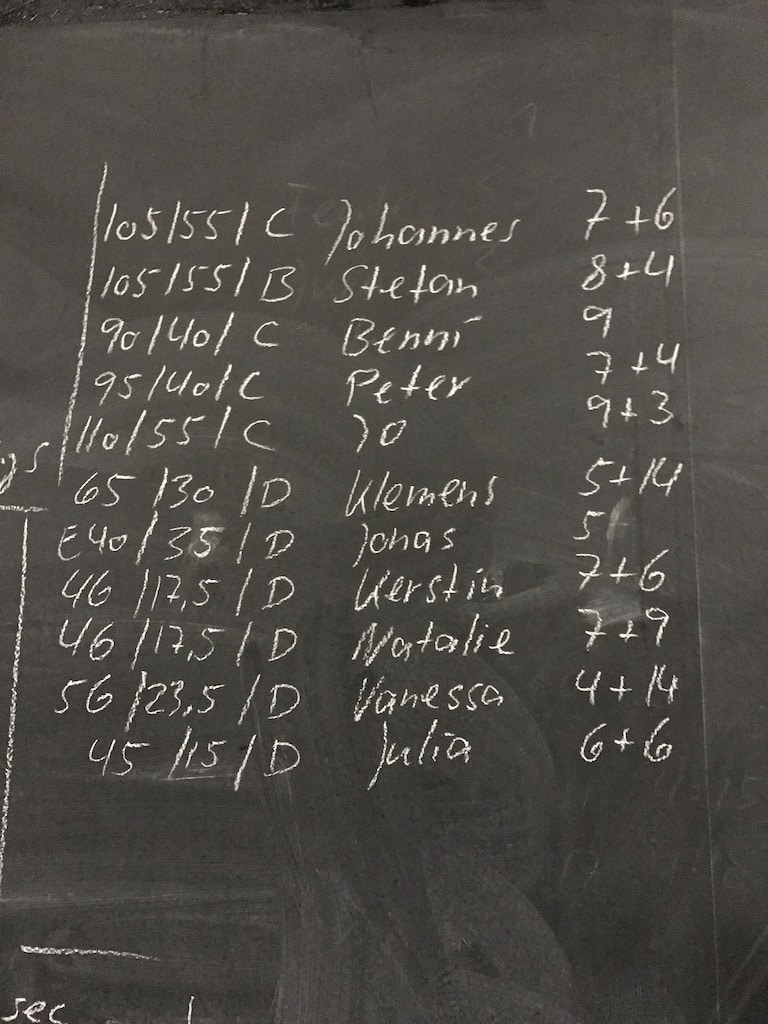 105/55/ C Johannes 7+6
105/55/ B Stefan 8+4
90/40/ C Benni 9
95/40/C Peter 7+4
110/55/ C JO 9+3
65/30/D Klemens 5+14
E40/35/D Jonas 5
46/17,5/D Kerstin 7+6
46/17,5/D Natalie 7+9
56/23,5/D Vanessa 4+14
45/15/D Julia 6+6
sec